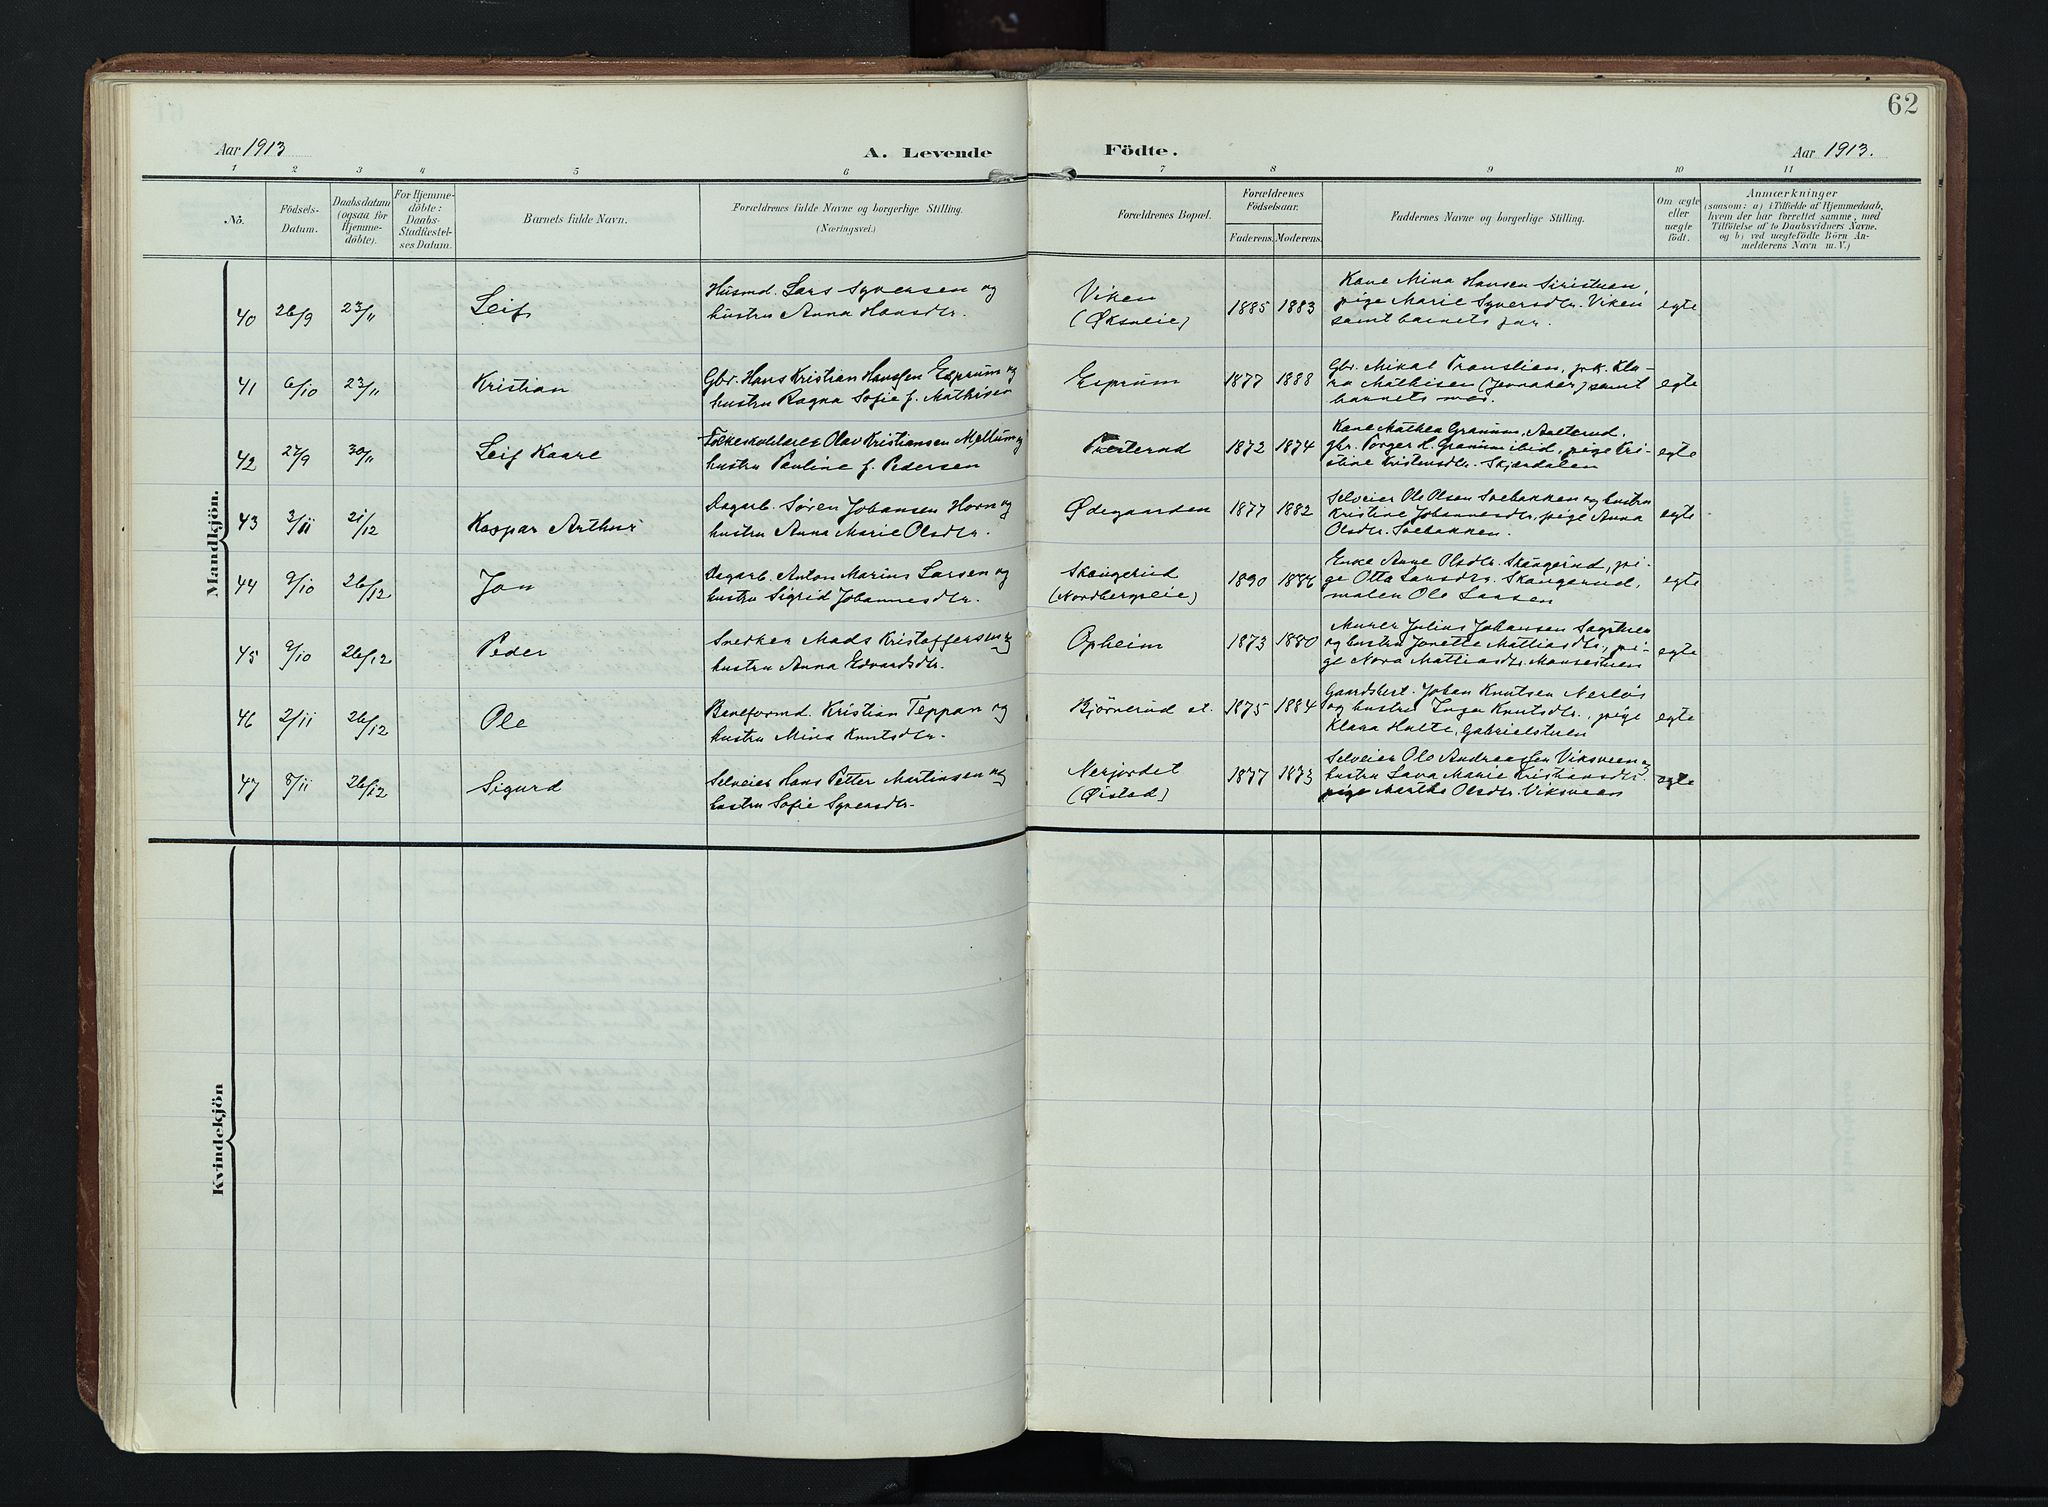 62
Aar 1913
A. Levende
Födte.
Aar 1913.
1 2 3 4 5 6 7 8 9 10 11
Nò.
Födsels-
Datum.
Daabsdatum
(ogsaa for
Hjemme-
döbte).
For Hjemme-
döbte:
Daabs-
Stadfæstel-
ses Datum.
Barnets fulde Navn.
Forældrenes fulde Navne og borgerlige Stilling.
(Næringsvei.)
Forældrenes Bopæl.
Forældrenes
Födselsaar.
Faderens. Moderens.
Faddernes Navne og borgerlige Stilling.
Om ægte
eller
uægte
födt.
Anmærkninger
(saasom: a) i Tilfælde af Hjemmedaab,
hvem der har forrettet samme, med
Tilföielse af to Daabsvidners Navne.
og b) ved uægtefödte Börn An-
melderens Navn m. V.)
Mandkjön.
40 26/9 23/11 Leif
Husmd. Lars Syversen og
hustru Anna Hansdtr.
Viken
(Øksneie)
1885 1883
Kone Mina Hansen Siristuen,
pige Marie Syversdtr. Viken
samt barnets far.
egte
41 6/10 23/11 Kristian
Gbr. Hans Kristian Hanssen Esprum og
hustru Ragna Sofie f. Mathisen
Esprum
1877 1888
Gbr. Mikal Transtien, frk. Kla-
ra Mathisen (Jevnaker) samt
barnets mor.
egte
42 27/9 30/11 Leif Kaare
Folkeskolelærer Olav Kristiansen Mellum og
hustru Pauline f. Pedersen
Presterud
1872 1874
Kone Mathea Granum,
gbr. Torger H. Granum ibid, pige Kri-
stine Kristensdtr. Skjærdalen
egte
43 3/11 21/12 Kaspar Arthur
Dagarb. Søren Johansen Horn og
hustru Anna Marie Olsdtr.
Ødegaarden
1877 1882
Selveier Ole Olsen Svebakken og hustru
Kristine Johannesdtr, pige Anna
Olsdtr. Svebakken.
egte
44 9/10 26/12 Jon
Dagarb. Anton Marius Larsen og
hustru Sigrid Johannesdtr.
Skangerud
(Nordbergseie)
1890 1886
Enke Anne Olsdtr. Skangerud, pi-
ge Otta Larsdtr. Skangerud,
maler Ole Larsen
egte
45 9/10 26/12 Peder
Snedker Mads Kristoffersen og
hustru Anna Edvardsdtr.
Opheim
1873 1880
Murer Julius Johansen Sagstuen
og hustru Jonette Mattiasdtr, pi-
ge Nora Mattiasdtr. Monsestuen
egte
46 2/11 26/12 Ole
Baneformd. Kristian Teppan og
hustru Mina Knutsdtr.
Bjørnerud st.
1875 1884
Gaardsbest. Johan Knutsen Nerløs
og hustru Inga Knutsdtr., pige
Klara Holte, Gabrielstuen
egte
47 8/11 26/12 Sigurd
Selveier Hans Petter Martinsen og
hustru Sofie Syversdtr.
Nerjordet
(Øistad)
1877 1873
Selveier Ole Andreassen Viksveen og
hustru Lava Marie Kristiansdtr.
pige Marthe Olsdtr. Viksveen
egte
Kvindekjön